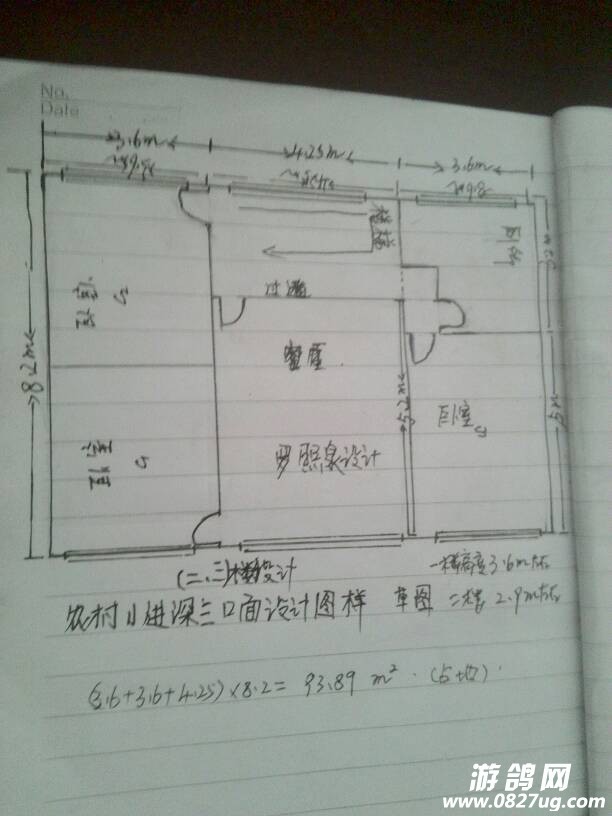 No.
Date
3.6m 4.25m 3.6m
楼梯
卧室
过道
卧室 C2
客厅
8.2m
5.2m
卧室 C3
5m
卧室 C1
罗照泉设计
(二.三)楼设计
一楼高度3.6m左右
农村小进深三口面设计图样 草图 二楼2.9m左右
(3.6+3.6+4.25)×8.2= 93.89 m². (占地).
游鸽网
www.0827ug.com